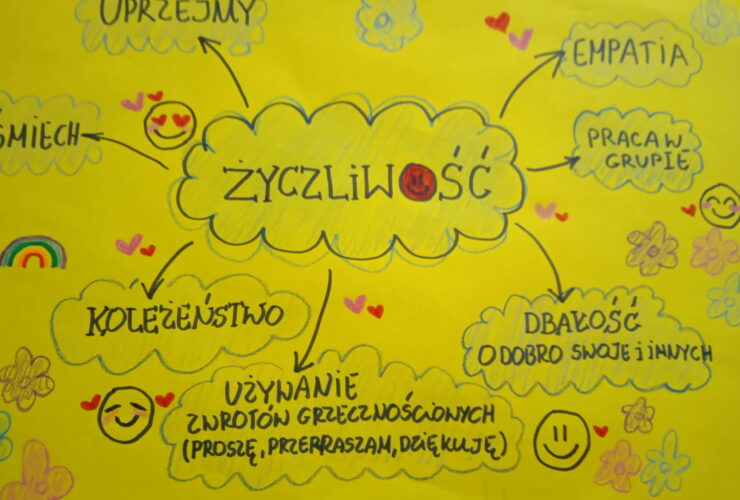 UPRZEJMY
EMPATIA
ŚMIECH
PRACA W
GRUPIE
ŻYCZLiWOŚĆ
KOLEŻEŃSTWO
DBAŁOŚĆ
O DOBRO SWOJE i INNYCH
UŻYWANIE
ZWROTÓW GRZECZNOŚCIONYCH
(PROSZĘ, PRZEPRASZAM, DZIĘKUJĘ)